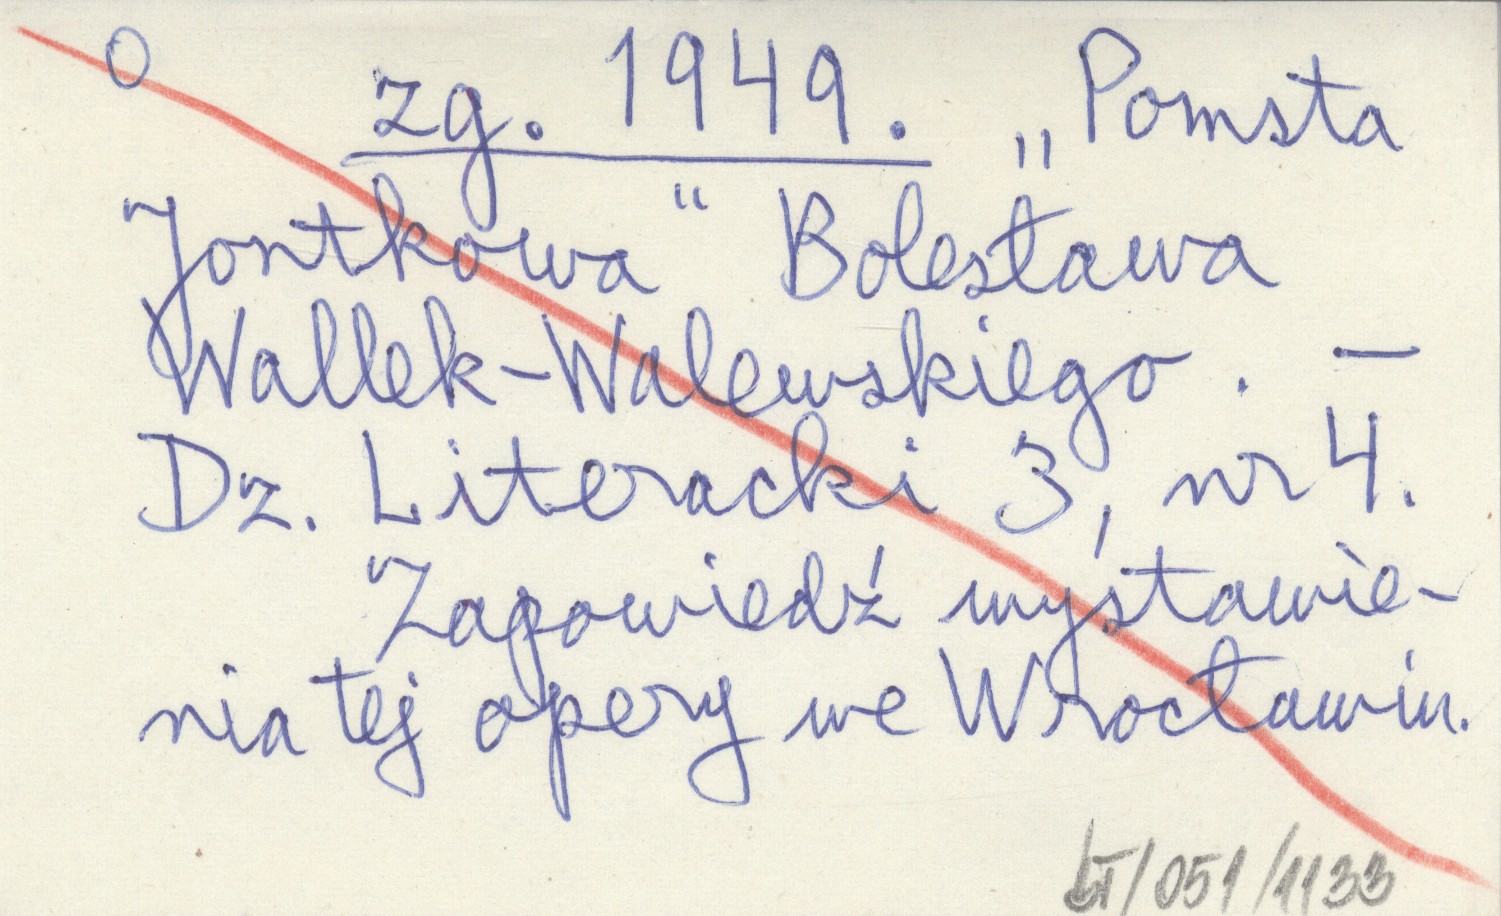 O zg. 1949. „Pomsta
Jontkowa“ Bolesława
Wallek-Walewskiego. —
Dz. Literacki 3, nr 4.
Zapowiedź wystawie-
nia tej opery we Wrocławiu.
/051/1133